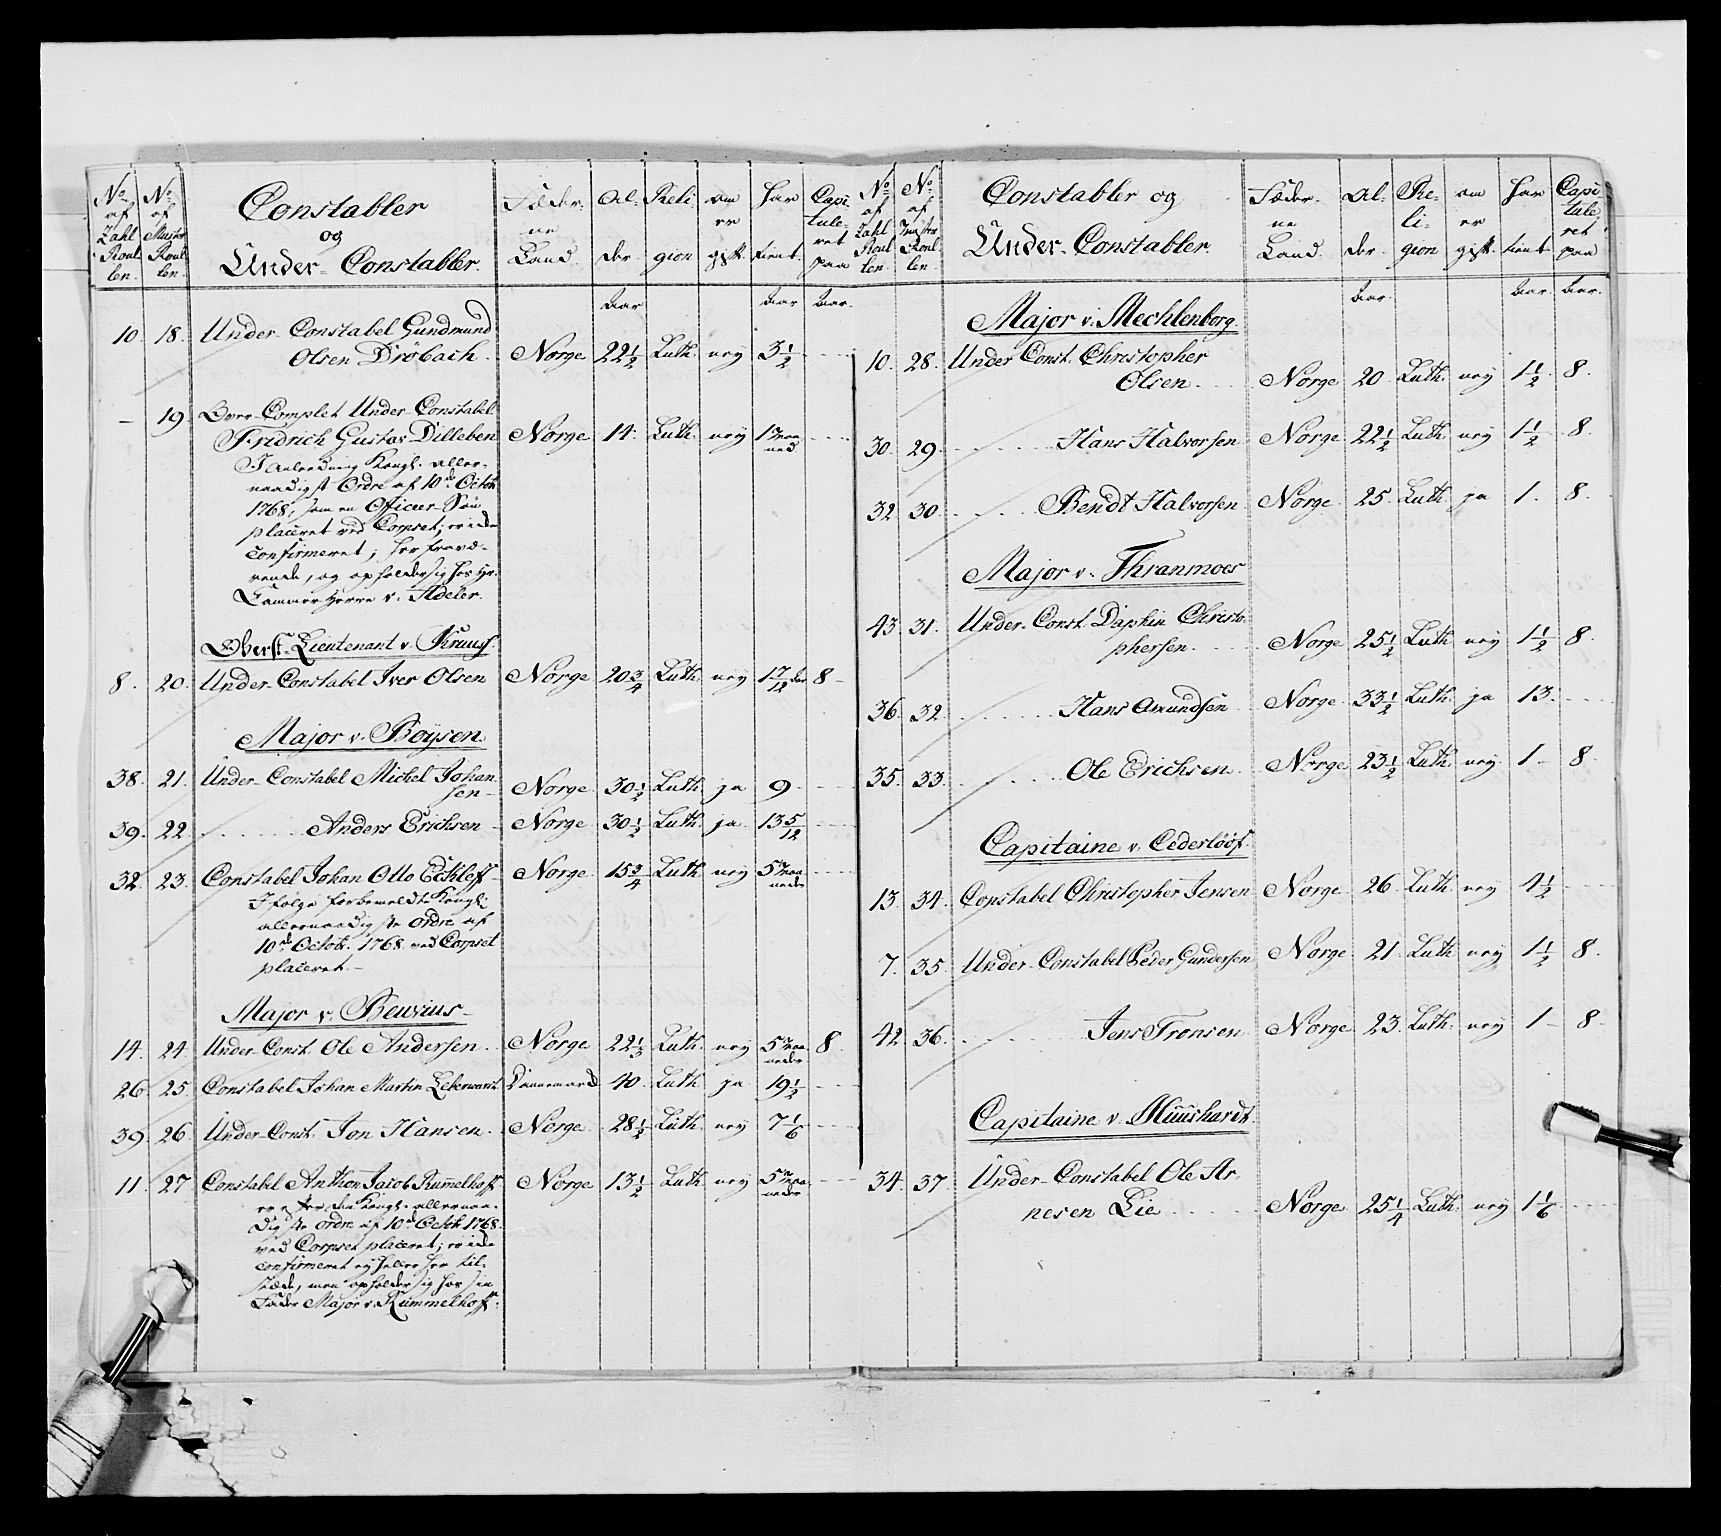 No af Zahl Roul len. No af Mster Roul len. Constabler og Under-Constabler. Fæder- ne Land. Al- der. Reli gion om er gift. Har tient. Capi tule- ret paa
Aar Aar Aar.
10. 18. Under-Constabel Gundmund
Olsen Drøbach. Norge 22 1/2 Luth. ney 3 1/2
- 19. Over-Complet Under-Constabel
Fridrich Gustav Dilleben Norge 14. Luth. ney 1 Maa
ned
I Anledning Kongl. aller-
naadigst Ordre af 10de Octob.
1768, som en Officier-Søn
placeret ved Corpset; er icke
confirmeret; her fravæ-
rende, og opholder sig hos Hr.
Cammer Herre v. Adeler.
Oberst-Lieutenant v. Kruus.
8. 20. Under-Constabel Iver Olsen Norge 20 3/4 Luth. ney 1 7/12 8-
Major v. Boysen
38. 21. Under-Constabel Michel Johan
sen- Norge 30 1/2 Luth. ja 9
39. 22. Anders Erichsen Norge 30 1/2 Luth. ja 13 5/12
32. 23. Constabel Johan Otto Eckleff Norge 15 3/4 Luth. ney 5 Maa
neder
I følge forbemeldte Kongl.
allernaadigste Ordre af
10de Octob. 1768 ved Corpset
placeret.-
Major v. Beuvius
14. 24. Under-Const. Ole Andersen. Norge 22 1/3 Luth. ney 5 Maa
neder 8.
26. 25. Constabel Johan Martin Leberwardt Dannemarck 40. Luth. ja 19 1/2
39. 26. Under-Const. Jon Hansen. Norge 28 1/2 Luth. ney 7 1/6
11. 27 Constabel Anthon Jacob Rumelhoff Norge 13 1/2 Luth. ney 5 Maa
neder
er efter den Kongl. allernaa-
digste Ordre af 10de Octob. 1768.
ved Corpset placeret; er icke
confirmeret ey heller her til-
stæde, men opholder sig hos sin
Fader Major v. Rummelhoff.
No af Zahl Roul len. No af Mønster Roul- len. Constabler og Under-Constabler. Fæder- ne Land. Al- der. Re- li- gion om er gift. Har tient Capi tule ret paa
Aar. Aar. Aar.
Major v. Mechlenborg.
10. 28. Under Const. Christopher
Olsen. Norge 20 Luth. ney 1 1/2 8.
30. 29. Hans Halvorsen Norge 22 1/2 Luth ney 1 1/2 8.
32. 30. Bendt Halvorsen Norge 25. Luth. ja 1. 8.
Major v. Thranmoes
43. 31. Under-Const. Daphin Christo-
phersen. Norge 25 1/2 Luth ney 1 1/2 8.
36. 32. Hans Amundsen Norge. 33 1/2 Luth. ja 13.
35. 33. Ole Erichsen. Norge 23 1/2 Luth. ney 1- 8-
Capitaine v. Cederlööf.
13. 34. Constabel Christopher Jensen Norge 26. Luth. ney 4 1/2
7. 35. Under-Constabel Peder Gundersen Norge 21. Luth ney 1 1/2 8.
42. 36. Jens Tronsen Norge 23. Luth. ney 1- 8-
Capitaine v. Huushardt
34. 37. Under-Constabel Ole Ar-
nesen Lie Norge 25 1/4 Luth. ney 1 1/6